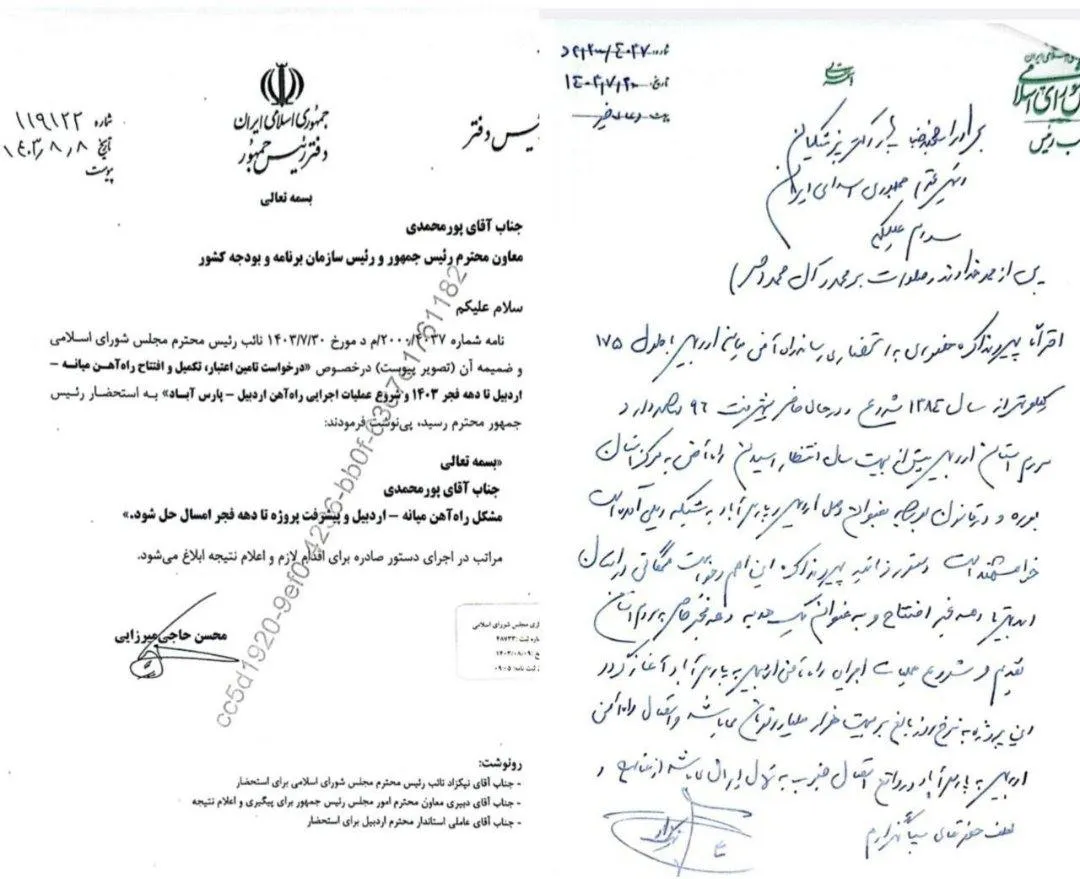 جمهوری اسلامی ایران
دفتر رئیس جمهور
رئیس دفتر
شماره ۱۱۹۱۲۲
تاریخ ۱۴۰۳/۸/۸
پیوست
بسمه تعالی
جناب آقای پورمحمدی
معاون محترم رئیس جمهور و رئیس سازمان برنامه و بودجه کشور
سلام علیکم
نامه شماره ۲۰۰۰/۴۰۳۷/م د مورخ ۱۴۰۳/۷/۳۰ نائب رئیس محترم مجلس شورای اسلامی
و ضمیمه آن (تصویر پیوست) درخصوص «درخواست تامین اعتبار، تکمیل و افتتاح راه‌آهن میانه –
اردبیل تا دهه فجر ۱۴۰۳ و شروع عملیات اجرایی راه‌آهن اردبیل – پارس آباد» به استحضار رئیس
جمهور محترم رسید، پی‌نوشت فرمودند:
«بسمه تعالی
جناب آقای پورمحمدی
مشکل راه‌آهن میانه – اردبیل و پیشرفت پروژه تا دهه فجر امسال حل شود.»
مراتب در اجرای دستور صادره برای اقدام لازم و اعلام نتیجه ابلاغ می‌شود.
محسن حاجی‌میرزایی
مجلس شورای اسلامی
ثبت: ۴۸۷۳۳
۱۴۰۳/۰۸/۰۹
رونوشت:
- جناب آقای نیکزاد نائب رئیس محترم مجلس شورای اسلامی برای استحضار
- جناب آقای دبیری معاون محترم امور مجلس رئیس جمهور برای پیگیری و اعلام نتیجه
- جناب آقای عاملی استاندار محترم اردبیل برای استحضار
شورای اسلامی
نایب رئیس
برادر ارجمند جناب آقای دکتر پزشکیان
رئیس محترم جمهوری اسلامی ایران
سلام علیکم
پس از حمد خداوند و صلوات بر محمد و آل محمد (ص)
احتراماً پیرو مذاکره حضوری به استحضار می‌رساند راه آهن میانه اردبیل بطول ۱۷۵
کیلومتر از سال ۱۳۸۴ شروع و در حال حاضر پیشرفت ۹۶ درصد دارد
مردم استان اردبیل بیش از بیست سال انتظار رسیدن راه آهن به مرکز استان
بوده و در قانون بودجه بعنوان وصل اردبیل و پارس آباد به شبکه ریلی آمده است
خواهشمند است دستور فرمائید پیرو مذاکره این امر
تا دهه فجر افتتاح و به عنوان یک هدیه به مردم استان
تقدیم و شروع عملیات اجرایی راه آهن اردبیل به پارس آباد آغاز گردد
این پروژه به نرخ روز بالغ بر بیست هزار میلیارد تومان می‌باشد و اتصال راه آهن
اردبیل به پارس آباد در واقع اتصال جنوب به شمال ایران می‌باشد از
لطف حضرتعالی سپاسگزارم
نیکزاد